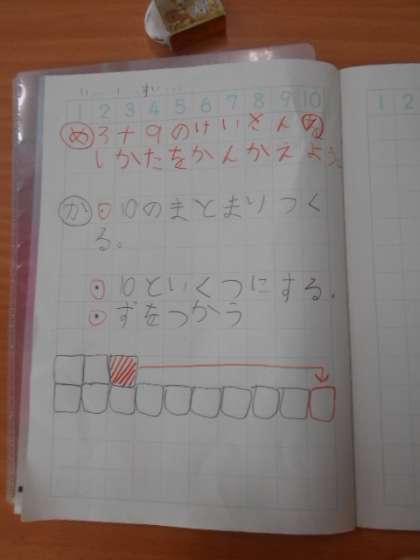 1 2 3 4 5 6 7 8 9 10
め 3+9のけいさんの
しかたをかんがえよう。
か ・10のまとまりつく
る。
・10といくつにする。
・ずをつかう
1 2